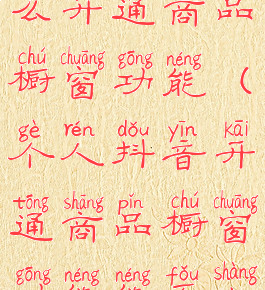 么开通商品
chú chuāng gōng néng
橱窗功能（
gè rén dǒu yīn kāi
个人抖音开
tōng shāng pǐn chú chuāng
通商品橱窗
gōng néng néng fǒu shàng